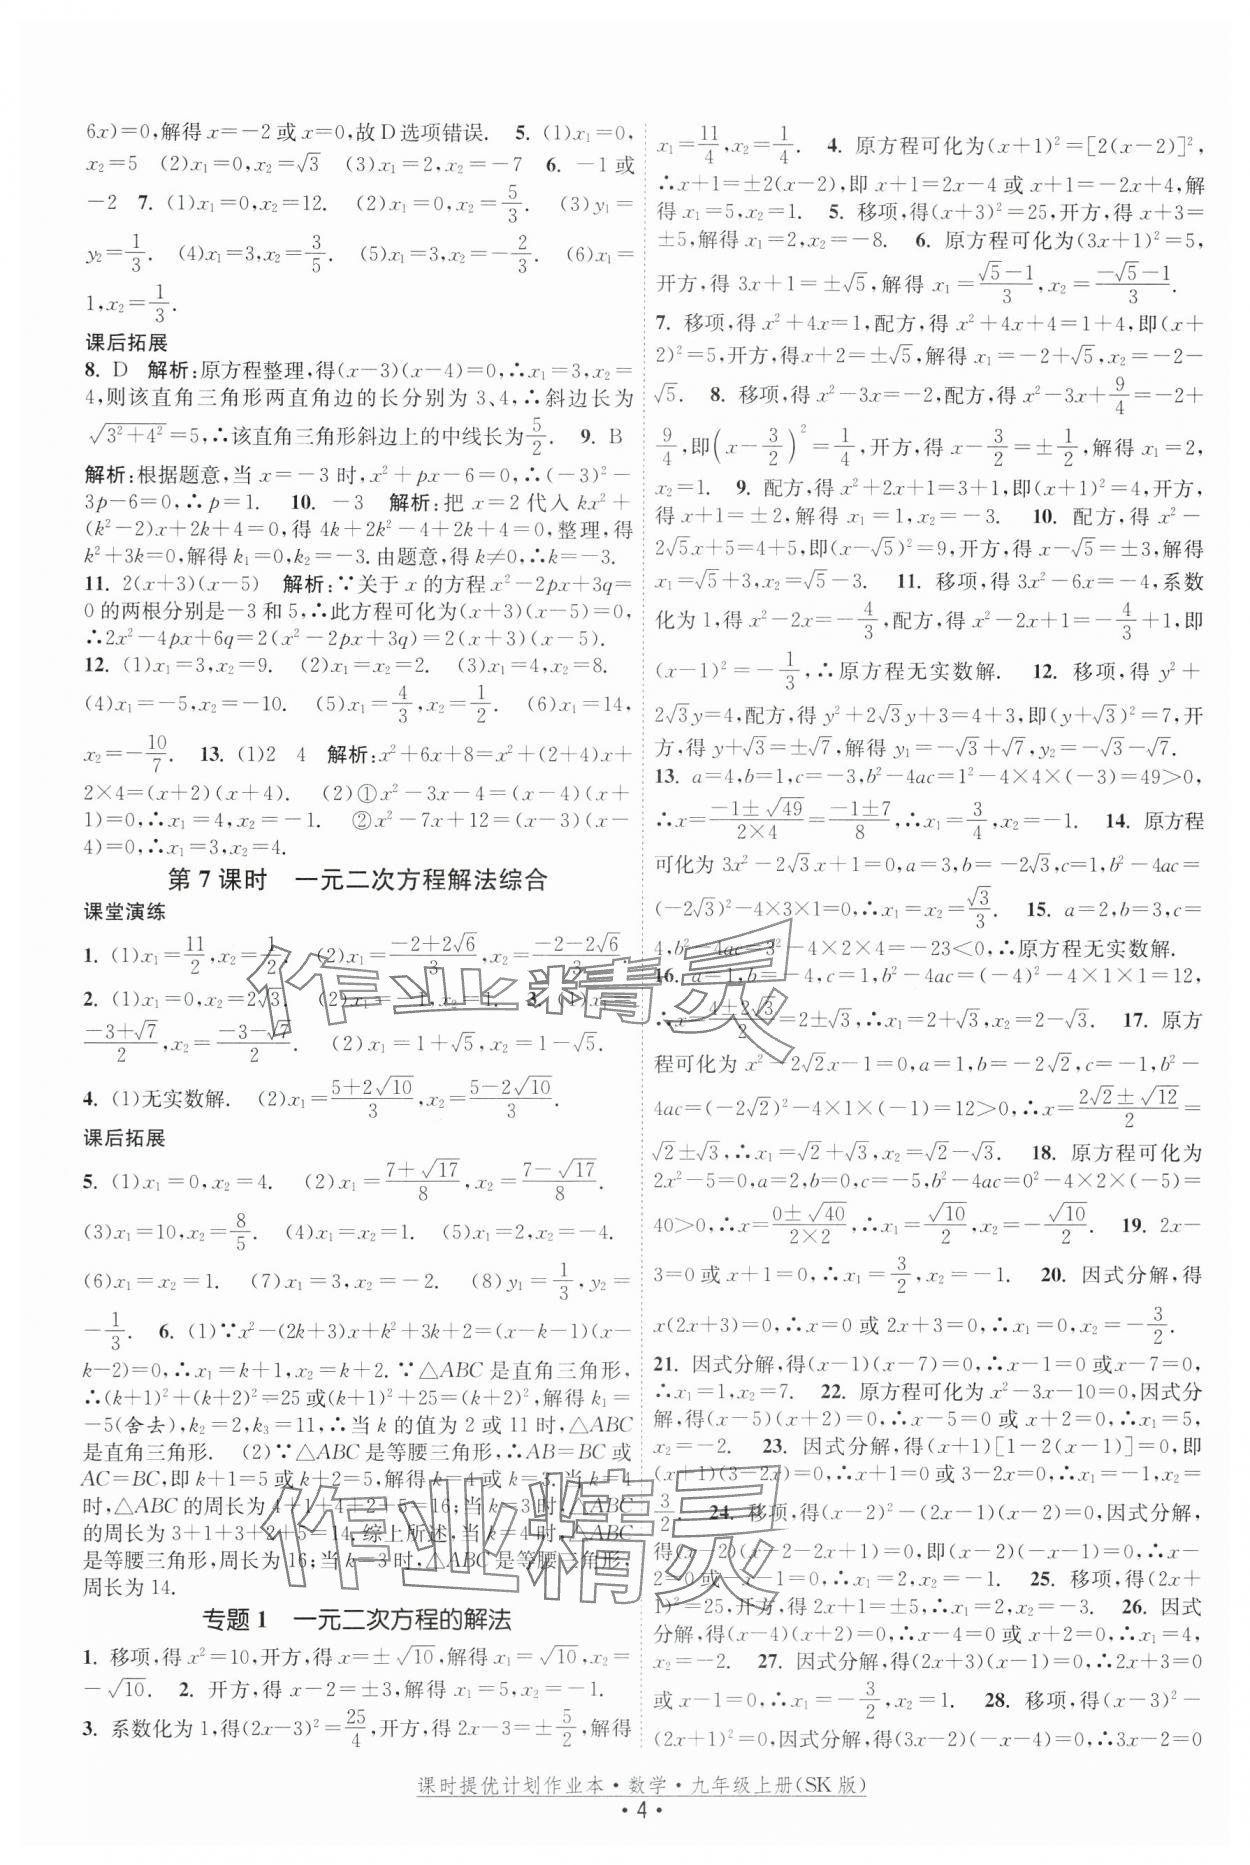 6x)=0,解得 x=-2 或 x=0,故 D 选项错误. 5. (1)x₁=0,
x₂=5 (2)x₁=0,x₂=√3 (3)x₁=2,x₂=-7 6. -1 或
-2 7. (1)x₁=0,x₂=12. (2)x₁=0,x₂=5/3. (3)y₁=
y₂=1/3. (4)x₁=3,x₂=3/5. (5)x₁=3,x₂=-2/3. (6)x₁=
1,x₂=1/3.
课后拓展
8. D 解析:原方程整理,得(x-3)(x-4)=0,∴x₁=3,x₂=
4,则该直角三角形两直角边的长分别为 3、4,∴斜边长为
√(3²+4²)=5,∴该直角三角形斜边上的中线长为5/2. 9. B
解析:根据题意,当 x=-3 时,x²+px-6=0,∴(-3)²-
3p-6=0,∴p=1. 10. -3 解析:把 x=2 代入 kx²+
(k²-2)x+2k+4=0,得 4k+2k²-4+2k+4=0,整理,得
k²+3k=0,解得 k₁=0,k₂=-3.由题意,得 k≠0,∴k=-3.
11. 2(x+3)(x-5) 解析:∵关于 x 的方程 x²-2px+3q=
0 的两根分别是-3 和 5,∴此方程可化为(x+3)(x-5)=0,
∴2x²-4px+6q=2(x²-2px+3q)=2(x+3)(x-5).
12. (1)x₁=3,x₂=9. (2)x₁=x₂=2. (3)x₁=4,x₂=8.
(4)x₁=-5,x₂=-10. (5)x₁=4/3,x₂=1/2. (6)x₁=14,
x₂=-10/7. 13. (1)2 4 解析:x²+6x+8=x²+(2+4)x+
2×4=(x+2)(x+4). (2)①x²-3x-4=(x-4)(x+
1)=0,∴x₁=4,x₂=-1. ②x²-7x+12=(x-3)(x-
4)=0,∴x₁=3,x₂=4.
第 7 课时 一元二次方程解法综合
课堂演练
1. (1)x₁=11/2,x₂=1/2. (2)x₁=(-2+2√6)/3,x₂=(-2-2√6)/3.
2. (1)x₁=0,x₂=2√3. (2)x₁=4,x₂=1. 3. (1)x₁=
(-3+√7)/2,x₂=(-3-√7)/2. (2)x₁=1+√5,x₂=1-√5.
4. (1)无实数解. (2)x₁=(5+2√10)/3,x₂=(5-2√10)/3.
课后拓展
5. (1)x₁=0,x₂=4. (2)x₁=(7+√17)/8,x₂=(7-√17)/8.
(3)x₁=10,x₂=8/5. (4)x₁=x₂=1. (5)x₁=2,x₂=-4.
(6)x₁=x₂=1. (7)x₁=3,x₂=-2. (8)y₁=1/3,y₂=
-1/3. 6. (1)∵x²-(2k+3)x+k²+3k+2=(x-k-1)(x-
k-2)=0,∴x₁=k+1,x₂=k+2.∵△ABC 是直角三角形,
∴(k+1)²+(k+2)²=25 或(k+1)²+25=(k+2)²,解得 k₁=
-5(舍去),k₂=2,k₃=11,∴当 k 的值为 2 或 11 时,△ABC
是直角三角形. (2)∵△ABC 是等腰三角形,∴AB=BC 或
AC=BC,即 k+1=5 或 k+2=5,解得 k=4 或 k=3.当 k=4
时,△ABC 的周长为 4+1+4+2+5=16;当 k=3 时,△ABC
的周长为 3+1+3+2+5=14.综上所述,当 k=4 时,△ABC
是等腰三角形,周长为 16;当 k=3 时,△ABC 是等腰三角形,
周长为 14.
专题 1 一元二次方程的解法
1. 移项,得 x²=10,开方,得 x=±√10,解得 x₁=√10,x₂=
-√10. 2. 开方,得 x-2=±3,解得 x₁=5,x₂=-1.
3. 系数化为 1,得(2x-3)²=25/4,开方,得 2x-3=±5/2,解得
x₁=11/4,x₂=1/4. 4. 原方程可化为(x+1)²=[2(x-2)]²,
∴x+1=±2(x-2),即 x+1=2x-4 或 x+1=-2x+4,解
得 x₁=5,x₂=1. 5. 移项,得(x+3)²=25,开方,得 x+3=
±5,解得 x₁=2,x₂=-8. 6. 原方程可化为(3x+1)²=5,
开方,得 3x+1=±√5,解得 x₁=(√5-1)/3,x₂=(-√5-1)/3.
7. 移项,得 x²+4x=1,配方,得 x²+4x+4=1+4,即(x+
2)²=5,开方,得 x+2=±√5,解得 x₁=-2+√5,x₂=-2-
√5. 8. 移项,得 x²-3x=-2,配方,得 x²-3x+9/4=-2+
9/4,即(x-3/2)²=1/4,开方,得 x-3/2=±1/2,解得 x₁=2,
x₂=1. 9. 配方,得 x²+2x+1=3+1,即(x+1)²=4,开方,
得 x+1=±2,解得 x₁=1,x₂=-3. 10. 配方,得 x²-
2√5x+5=4+5,即(x-√5)²=9,开方,得 x-√5=±3,解得
x₁=√5+3,x₂=√5-3. 11. 移项,得 3x²-6x=-4,系数
化为 1,得 x²-2x=-4/3,配方,得 x²-2x+1=-4/3+1,即
(x-1)²=-1/3,∴原方程无实数解. 12. 移项,得 y²+
2√3y=4,配方,得 y²+2√3y+3=4+3,即(y+√3)²=7,开
方,得 y+√3=±√7,解得 y₁=-√3+√7,y₂=-√3-√7.
13. a=4,b=1,c=-3,b²-4ac=1²-4×4×(-3)=49>0,
∴x=(-1±√49)/(2×4)=(-1±7)/8,∴x₁=3/4,x₂=-1. 14. 原方程
可化为 3x²-2√3x+1=0,a=3,b=-2√3,c=1,b²-4ac=
(-2√3)²-4×3×1=0,∴x₁=x₂=√3/3. 15. a=2,b=3,c=
4,b²-4ac=3²-4×2×4=-23<0,∴原方程无实数解.
16. a=1,b=-4,c=1,b²-4ac=(-4)²-4×1×1=12,
∴x=(4±2√3)/2=2±√3,∴x₁=2+√3,x₂=2-√3. 17. 原方
程可化为 x²-2√2x-1=0,a=1,b=-2√2,c=-1,b²-
4ac=(-2√2)²-4×1×(-1)=12>0,∴x=(2√2±√12)/2=
√2±√3,∴x₁=√2+√3,x₂=√2-√3. 18. 原方程可化为
2x²-5=0,a=2,b=0,c=-5,b²-4ac=0²-4×2×(-5)=
40>0,∴x=(0±√40)/(2×2),∴x₁=√10/2,x₂=-√10/2. 19. 2x-
3=0 或 x+1=0,∴x₁=3/2,x₂=-1. 20. 因式分解,得
x(2x+3)=0,∴x=0 或 2x+3=0,∴x₁=0,x₂=-3/2.
21. 因式分解,得(x-1)(x-7)=0,∴x-1=0 或x-7=0,
∴x₁=1,x₂=7. 22. 原方程可化为 x²-3x-10=0,因式分
解,得(x-5)(x+2)=0,∴x-5=0 或 x+2=0,∴x₁=5,
x₂=-2. 23. 因式分解,得(x+1)[1-2(x-1)]=0,即
(x+1)(3-2x)=0,∴x+1=0 或 3-2x=0,∴x₁=-1,x₂=
3/2. 24. 移项,得(x-2)²-(2x-1)(x-2)=0,因式分解,
得(x-2)(x-2-2x+1)=0,即(x-2)(-x-1)=0,∴x-
2=0 或 -x-1=0,∴x₁=2,x₂=-1. 25. 移项,得(2x+
1)²=25,开方,得 2x+1=±5,∴x₁=2,x₂=-3. 26. 因式
分解,得(x-4)(x+2)=0,∴x-4=0 或 x+2=0,∴x₁=4,
x₂=-2. 27. 因式分解,得(2x+3)(x-1)=0,∴2x+3=0
或 x-1=0,∴x₁=-3/2,x₂=1. 28. 移项,得(x-3)²-
(2x+1)²=0,因式分解,得(3x-2)(-x-4)=0,∴3x-2=0
课时提优计划作业本·数学·九年级上册(SK 版)
·4·
作业精灵
作业精灵